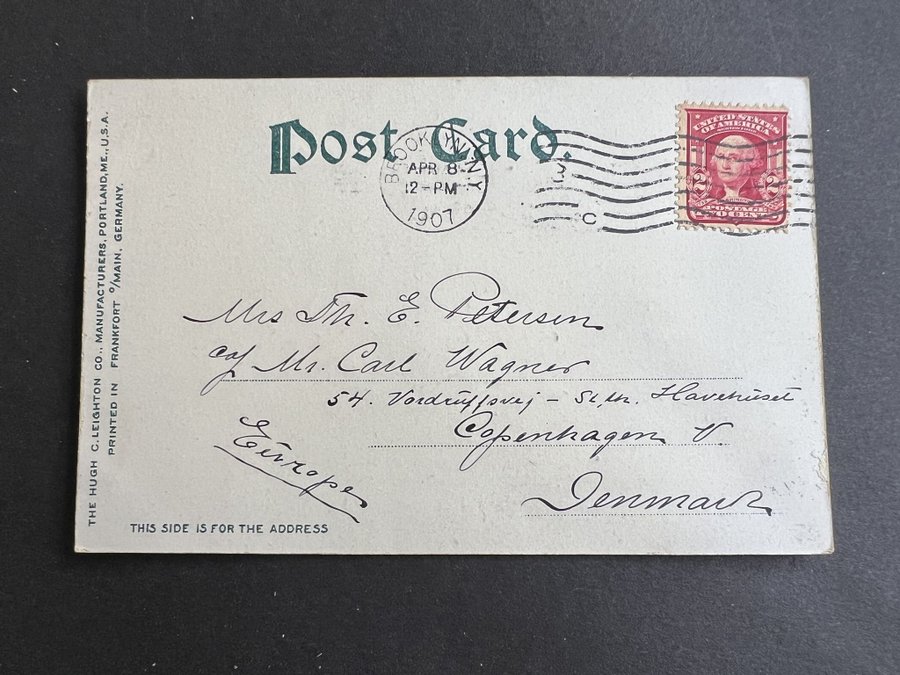 Post Card.
BROOKLYN, N.Y.
APR 8
12-PM
1907
3
C
UNITED STATES
OF AMERICA
2 2
POSTAGE
TWO CENTS
Mrs Th. E. Petersen
c/o Mr. Carl Wagner
54. Vordruffsvej - St, th. Havehuset
Copenhagen V
Europe
Denmark
THIS SIDE IS FOR THE ADDRESS
THE HUGH C. LEIGHTON CO., MANUFACTURERS, PORTLAND, ME., U.S.A.
PRINTED IN FRANKFORT o/MAIN, GERMANY.